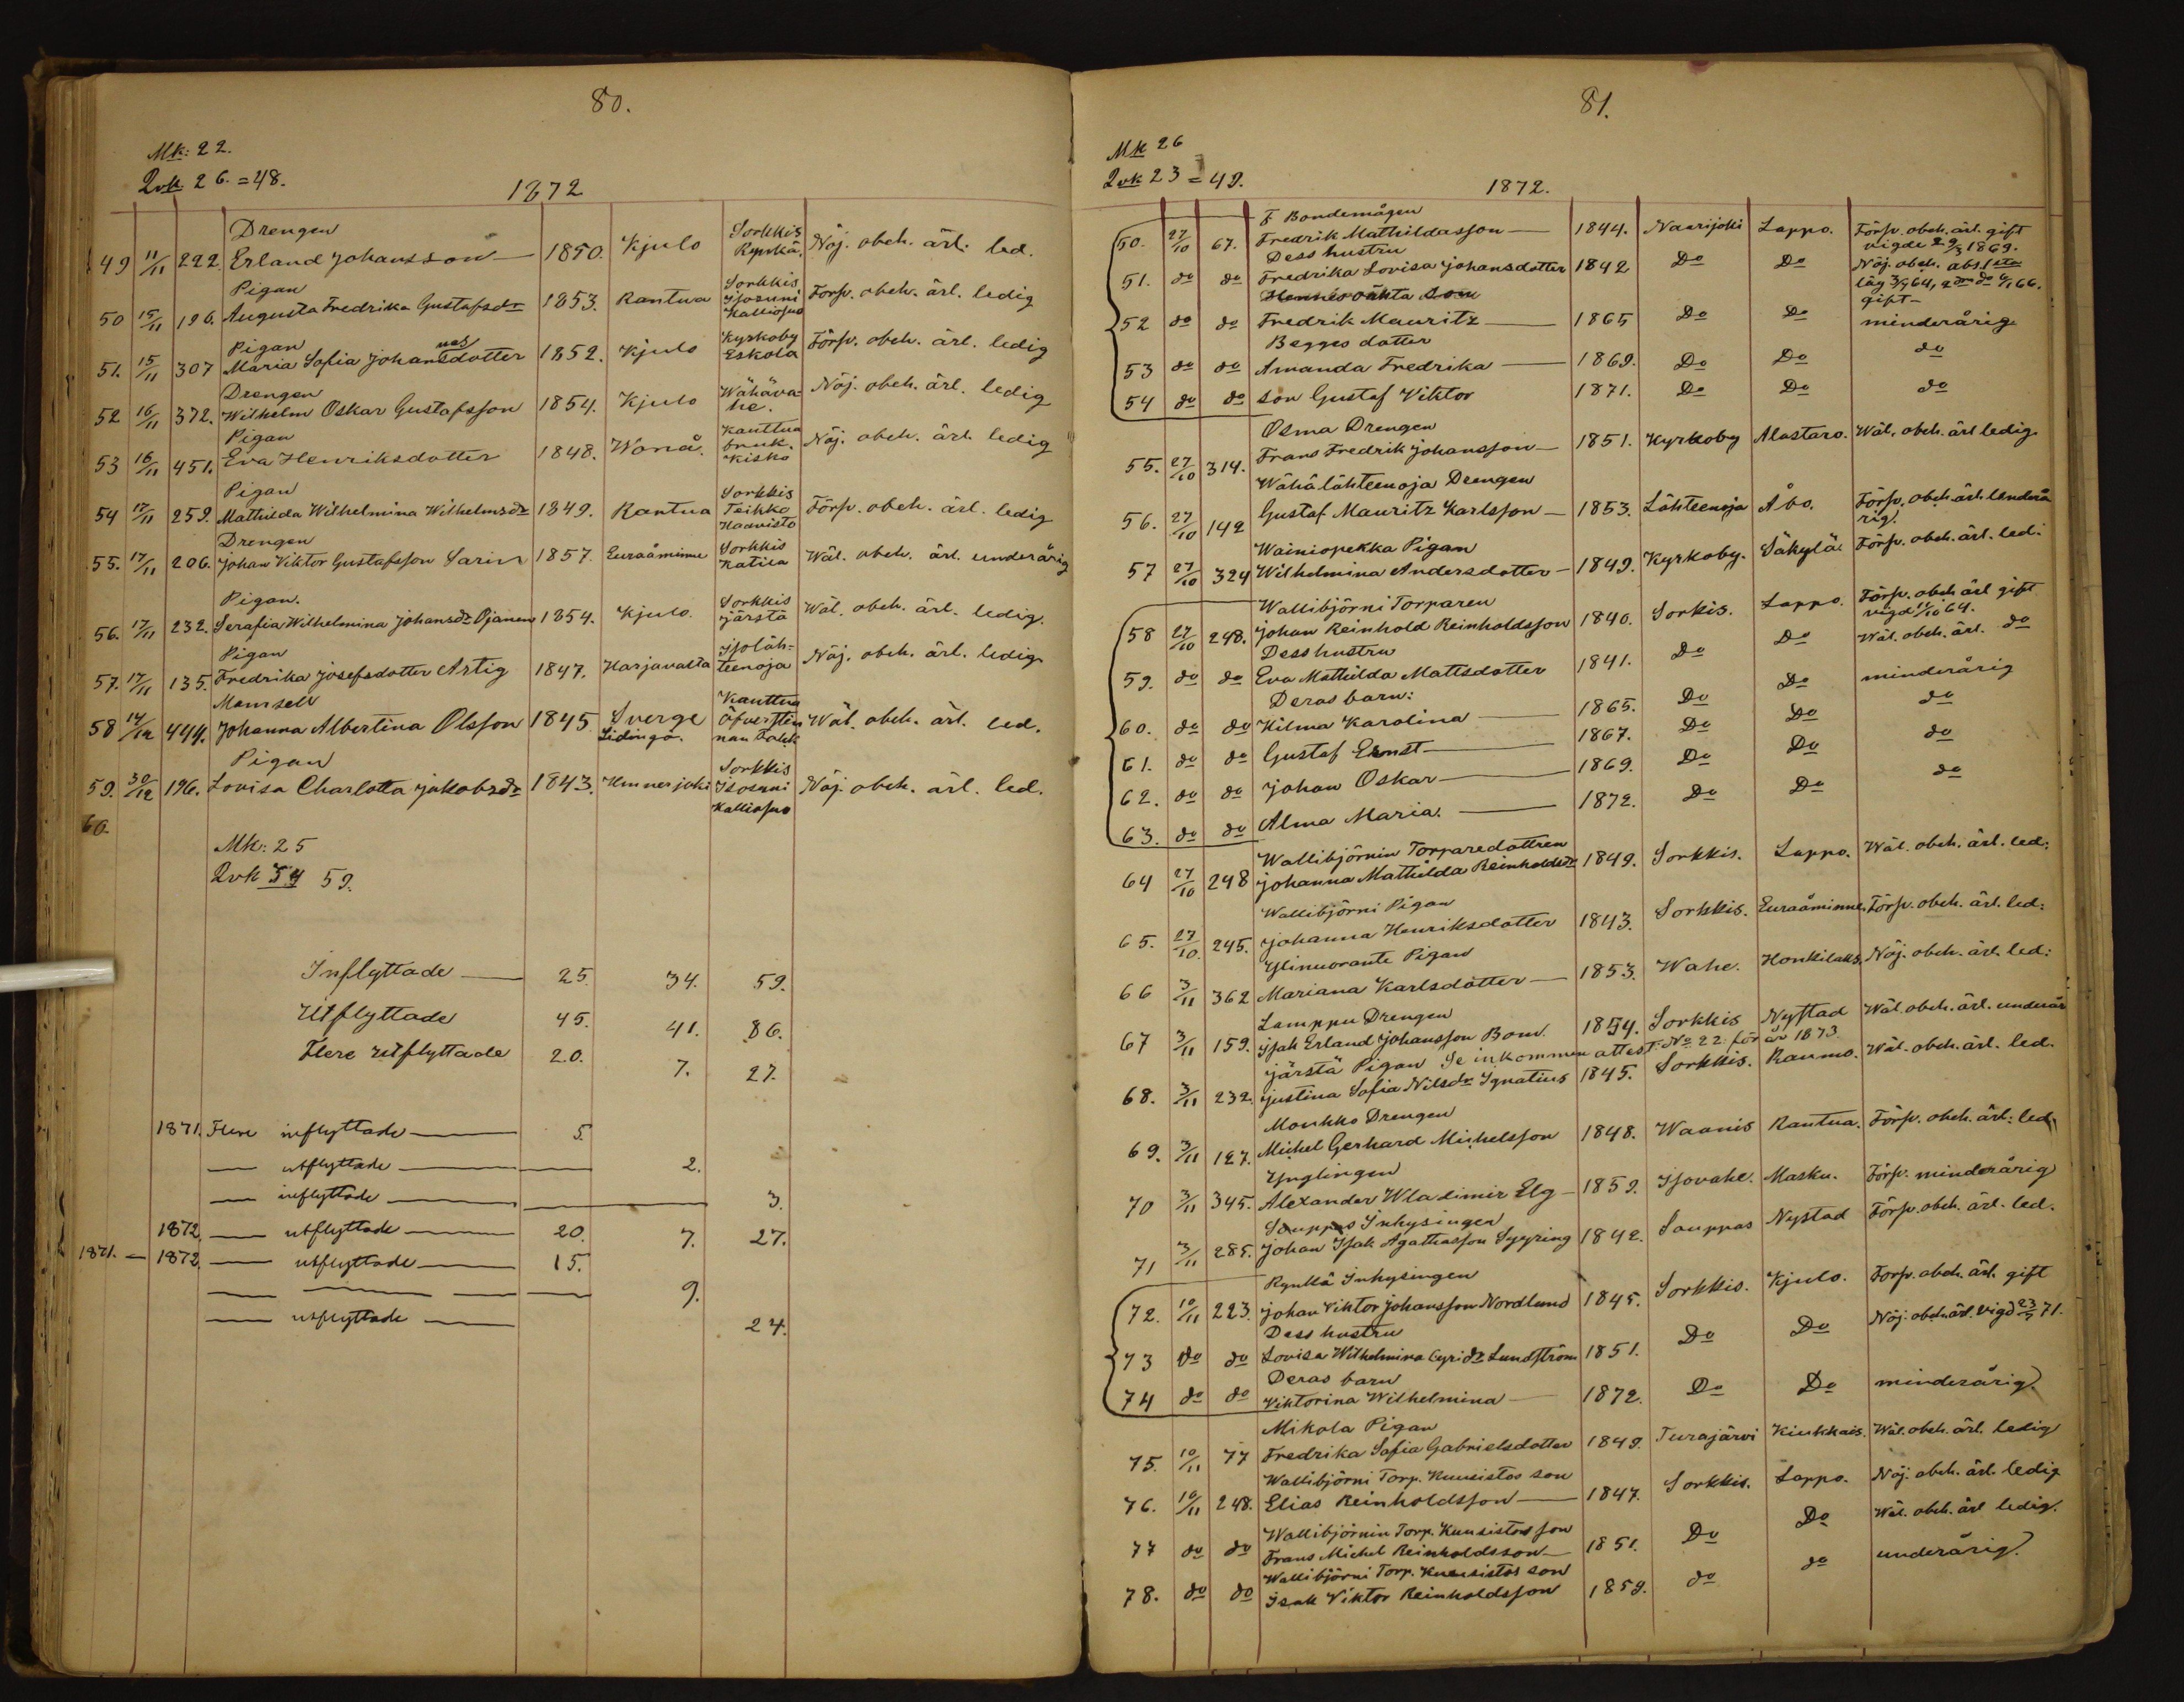 80.
Mk: 22.
Qvk 26. = 48.
1872
Drengen
49 11/11 222. Erland Johansson — 1850. Kjulo Sorkkis Rynkä. Nöj. obeh. ärl. led.
Pigan
50 15/11 196. Augusta Fredrika Gustafsdr 1853. Kantua Sorkkis Isosuni Kalliosuo Försv. obeh. ärl. ledig
Pigan
51. 15/11 307 Maria Sofia Johansdotter 1852. Kjulo Kyrkoby Eskola Försv. obeh. ärl. ledig
Drengen
52 16/11 372. Wilhelm Oskar Gustafsson 1854. Kjulo Wähäva-he. Nöj. obeh. ärl. ledig
Pigan
53 16/11 451. Eva Henriksdotter 1848. Wånå. Kauttua bruk. Kisko Nöj. obeh. ärl. ledig
Pigan
54 17/11 259. Mathilda Wilhelmina Wilhelmsdr 1849. Kantua Sorkkis Teikko Haavisto Försv. obeh. ärl. ledig
Drengen
55. 17/11 206. Johan Viktor Gustafsson Sarin 1857. Euraåminne Sorkkis Katila Wäl. obeh. ärl. underårig
Pigan.
56. 17/11 232. Serafia Wilhelmina Johansdr Ojanen 1854. Kjulo. Sorkkis Järstä Wäl. obeh. ärl. ledig.
Pigan
57. 17/11 135. Fredrika Josefsdotter Artig 1847. Harjavalta Isoläh-teenoja Nöj. obeh. ärl. ledig
Mamsell
58 14/12 444. Johanna Albertina Olsson 1845 Sverge Lidingö. Kauttua Öfversten nan Falck Wäl. obeh. ärl. led.
Pigan
59. 30/12 196. Lovisa Charlotta Jakobsdr 1843. Hinnerjoki Sorkkis Isosuni Kalliosuo Nöj. obeh. ärl. led.
60.
Mk: 25
Qvk 34 59.
Inflyttade — 25. 34. 59.
Utflyttade 45. 41. 86.
Flere utflyttade 20. 7. 27.
1871. Flere inflyttade — 5.
— utflyttade — 2.
— inflyttade — 3.
1872. — utflyttade — 20. 7. 27.
1871. — 1872. — utflyttade — 15.
— — — 9.
— utflyttade — 24.
81.
Mk 26
Qvk 23 = 49.
1872.
F Bondemågen
50. 27/10 67. Fredrik Mathildasson — 1844. Naarijoki Lappo. Försv. obeh. ärl. gift vigde 29/3 1869.
Dess hustru
51. do do Fredrika Lovisa Johansdotter 1842 Do Do Nöj. obeh. abs. 1sta läg 3/7 64, 2dra do 4/1 66. gift —
Hennes oäkta son
52 do do Fredrik Mauritz — 1865 Do Do minderårig
Begges dotter
53 do do Amanda Fredrika — 1869. Do Do do
54 do do son Gustaf Viktor 1871. Do Do do
Osma Drengen
55. 27/10 314. Frans Fredrik Johansson — 1851. Kyrkoby Alastaro. Wäl. obeh. ärl ledig
Wähälähteenoja Drengen
56. 27/10 142 Gustaf Mauritz Karlsson — 1853. Lähteenoja Åbo. Försv. obeh. ärl. underå rig.
Wainiopekka Pigan
57 27/10 324 Wilhelmina Andersdotter — 1849. Kyrkoby. Säkylä Försv. obeh. ärl. led.
Wallibjörni Torparen
58 27/10 248. Johan Reinhold Reinholdsson 1840. Sorkis. Lappo. Försv. obeh. ärl gift vigd 14/10 64.
Dess hustru
59. do do Eva Mathilda Mattsdotter 1841. Do Do Wäl. obeh. ärl. do
Deras barn:
60. do do Hilma Karolina — 1865. Do Do minderårig
61. do do Gustaf Ernst — 1867. Do Do do
62. do do Johan Oskar — 1869. Do Do do
63. do do Alma Maria. — 1872. Do Do do
Wallibjörnin Torparedottren
64 27/10 248 Johanna Mathilda Reinholdsdr 1849. Sorkkis. Lappo. Wäl. obeh. ärl. led:
Wallibjörni Pigan
65. 27/10. 245. Johanna Henriksdotter 1843. Sorkkis. Euraåminne. Försv. obeh. ärl. led:
Ylinuorante Pigan
66 3/11 362 Mariana Karlsdotter — 1853. Wahe. Honkilaks. Nöj. obeh. ärl. led:
Lamppu Drengen
67 3/11 159. Isak Erland Johansson Bom. 1854. Sorkkis Nystad Wäl. obeh. ärl. underår
Järstä Pigan Se inkommen attest. No 22 för år 1873.
68. 3/11 232. Justina Sofia Nilsdr Ignatius 1845. Sorkkis. Raumo. Wäl. obeh. ärl. led.
Moukko Drengen
69. 3/11 127. Michel Gerhard Michelsson 1848. Waanis Kantua. Försv. obeh. ärl. led.
Ynglingen
70 3/11 345. Alexander Wladimir Elg — 1859. Isovahe. Masku. Försv. minderårig
Sauppas Inhysingen
71 3/11 285. Johan Isak Agathasson Syyring 1842. Sauppas Nystad Försv. obeh. ärl. led.
Rynkä Inhysingen
72. 10/11 223. Johan Viktor Johansson Nordlund 1845. Sorkkis. Kjulo. Försv. obeh. ärl. gift
Dess hustru
73 do do Lovisa Wilhelmina Cyridr Lundström 1851. Do Do Nöj. obeh. ärl. vigd 23/7 71.
Deras barn
74 do do Viktorina Wilhelmina — 1872. Do Do minderårig
Mikola Pigan
75. 10/11 77 Fredrika Sofia Gabrielsdotter 1849. Turajärvi Kiukkais. Wäl. obeh. ärl. ledig
Wallibjörni Torp. Kuusistos son
76. 10/11 248. Elias Reinholdsson — 1847. Sorkkis. Lappo. Nöj. obeh. ärl. ledig
Wallibjörnin Torp. Kuusistos son
77 do do Frans Michel Reinholdsson — 1851. Do Do Wäl. obeh. ärl ledig.
Wallibjörni Torp. Kuusistos son
78. do do Isak Viktor Reinholdsson 1859. do do underårig.